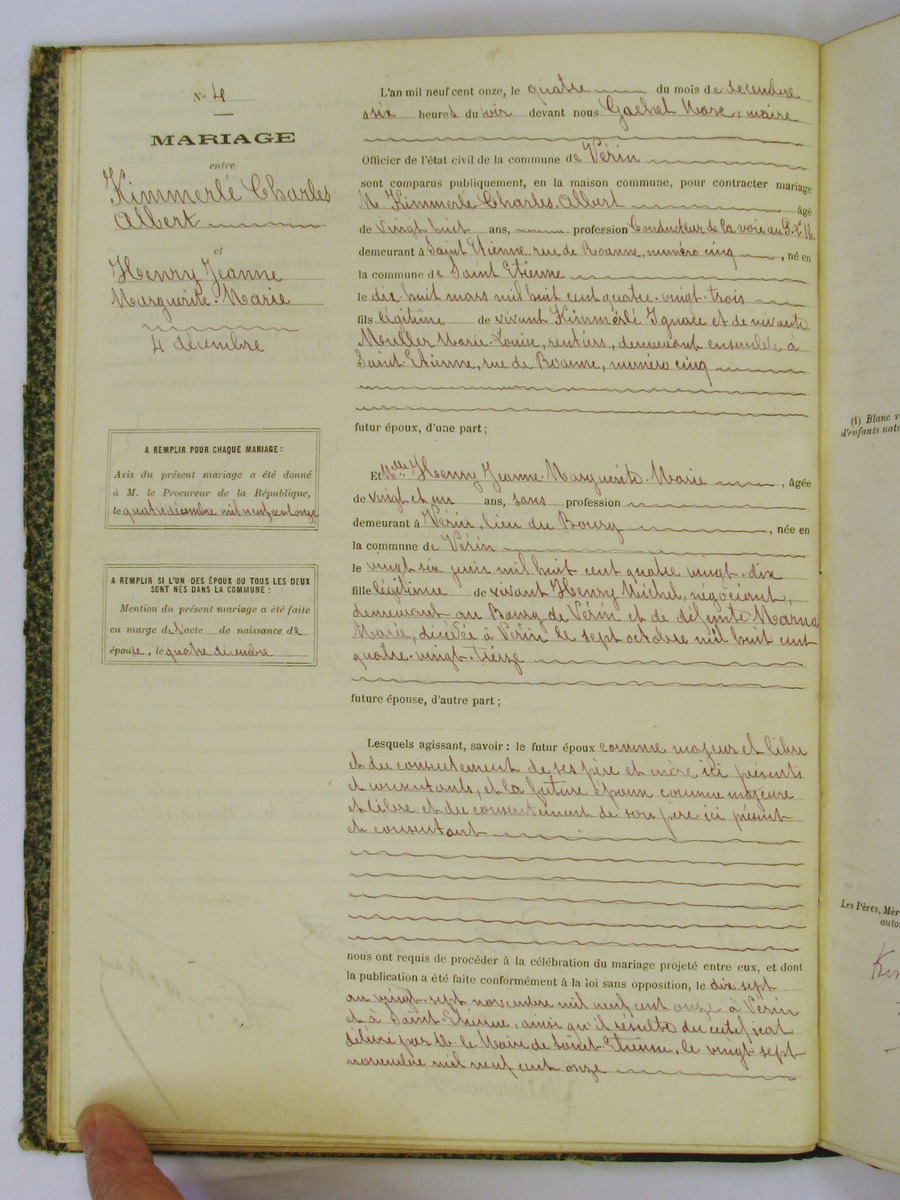 N° 4
MARIAGE
entre
Kimmerlé Charles
Albert
et
Henry Jeanne
Marguerite-Marie
4 décembre
A REMPLIR POUR CHAQUE MARIAGE :
Avis du présent mariage a été donné
à M. le Procureur de la République,
le quatre décembre mil neuf cent onze
A REMPLIR SI L'UN DES ÉPOUX OU TOUS LES DEUX
SONT NÉS DANS LA COMMUNE :
Mention du présent mariage a été faite
en marge de l'acte de naissance de
épouse, le quatre décembre
L'an mil neuf cent onze, le quatre du mois de décembre
à six heures du soir devant nous Gachet Marc, maire
Officier de l'état civil de la commune de Vérin
sont comparus publiquement, en la maison commune, pour contracter mariage
M. Kimmerlé Charles-Albert âgé
de vingt huit ans, profession Conducteur de la voie au P.L.M.
demeurant à Saint Etienne, rue de Roanne, numéro cinq, né en
la commune de Saint Etienne
le dix-huit mars mil huit cent quatre-vingt-trois
fils légitime de vivant Kimmerlé Ignace et de vivante
Muller Marie-Louise, rentiers, demeurant ensemble à
Saint-Etienne, rue de Roanne, numéro cinq
futur époux, d'une part ;
Et Mlle Henry Jeanne-Marguerite-Marie, âgée
de vingt et un ans, sans profession
demeurant à Vérin, lieu du Bourg, née en
la commune de Vérin
le vingt six juin mil huit cent quatre vingt-dix
fille légitime de vivant Henry Michel, négociant,
demeurant au Bourg de Vérin et de défunte
Marie, décédée à Vérin le sept octobre mil huit cent
quatre-vingt-treize
future épouse, d'autre part ;
Lesquels agissant, savoir : le futur époux comme majeur et libre
et du consentement de ses père et mère ici présents
et consentants, et la future épouse comme majeure
et libre et du consentement de son père ici présent
et consentant
nous ont requis de procéder à la célébration du mariage projeté entre eux, et dont
la publication a été faite conformément à la loi sans opposition, le dix-sept
au vingt-sept novembre mil neuf cent onze à Vérin
et à Saint-Etienne, ainsi qu'il résulte du certificat
délivré par M. le Maire de Saint-Etienne, le vingt sept
novembre mil neuf cent onze
(1) Blanc
d'enfants
Les Pères,